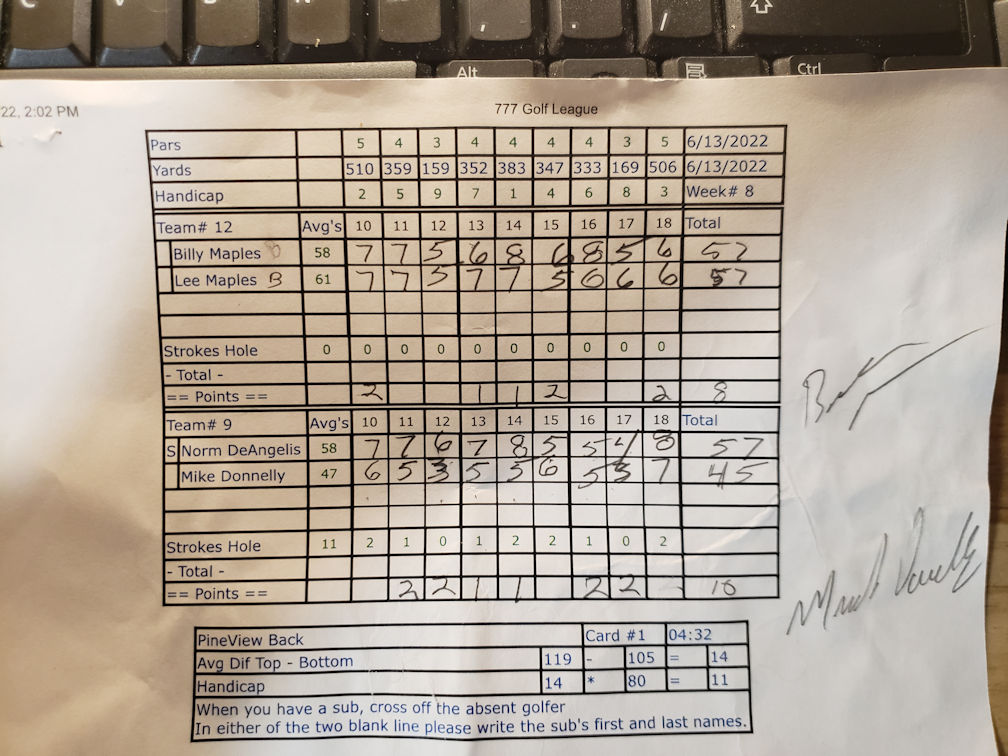 C V B N , . /
Alt Ctrl
22, 2:02 PM 777 Golf League
Pars 5 4 3 4 4 4 4 3 5 6/13/2022
Yards 510 359 159 352 383 347 333 169 506 6/13/2022
Handicap 2 5 9 7 1 4 6 8 3 Week# 8
Team# 12 Avg's 10 11 12 13 14 15 16 17 18 Total
Billy Maples 58 7 7 5 6 8 6 8 5 6 57
Lee Maples B 61 7 7 5 7 7 5 6 6 6 57
Strokes Hole 0 0 0 0 0 0 0 0 0 0
- Total -
== Points == 2 1 1 2 2 8
Team# 9 Avg's 10 11 12 13 14 15 16 17 18 Total
S Norm DeAngelis 58 7 7 6 7 8 5 5 4 8 57
Mike Donnelly 47 6 5 3 5 5 6 5 3 7 45
Strokes Hole 11 2 1 0 1 2 2 1 0 2
- Total -
== Points == 2 2 1 1 2 2 10
PineView Back Card #1 04:32
Avg Dif Top - Bottom 119 - 105 = 14
Handicap 14 * 80 = 11
When you have a sub, cross off the absent golfer
In either of the two blank line please write the sub's first and last names.